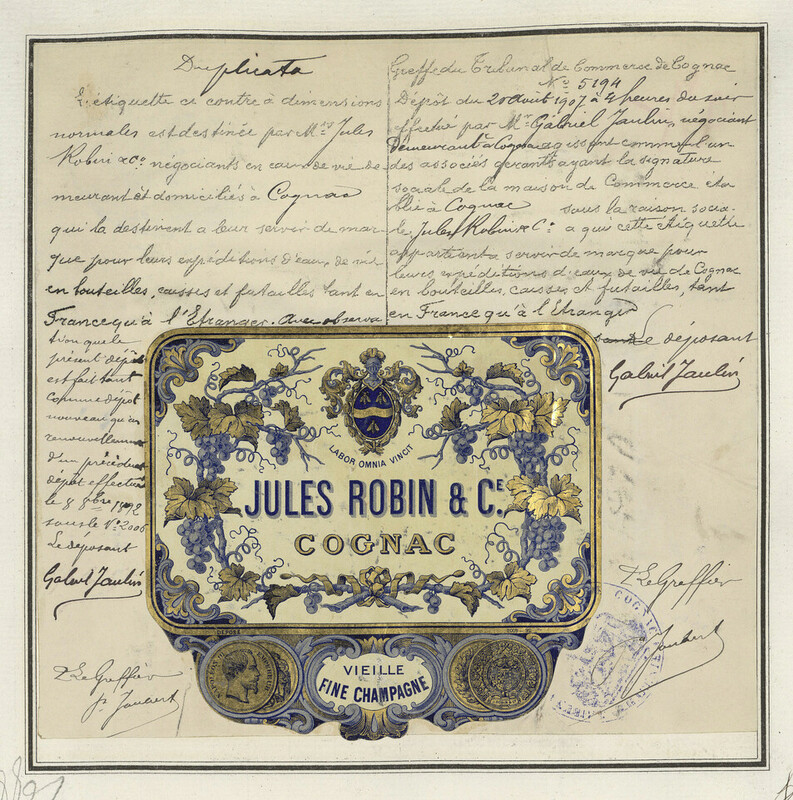 Duplicata
L'étiquette ci contre à dimensions
normales est destinée par Mrs Jules
Robin & Co négociants en eaux de vie de-
meurant et domiciliés à Cognac
qui la destinent a leur servir de mar-
que pour leurs expéditions d'eaux de vie
en bouteilles, caisses et futailles tant en
France qu'à l'Etranger. Avec observa
tion que le
présent dépôt
est fait tant
comme dépôt
nouveau qu'en
renouvellement
d'un précédent
dépôt effectué
le 8 8bre 1892
sous le No 2006
Le déposant
Gabriel Jaulin
P. Le Greffier
Jaubert
Greffe du Tribunal de Commerce de Cognac
No 5194
Dépôt du 20 août 1907 à 4 heures du soir
effectué par Mr Gabriel Jaulin, négociant
demeurant à Cognac agissant comme l'un
des associés gérants ayant la signature
sociale de la maison de Commerce éta
blie à Cognac sous la raison socia-
le Jules Robin & Co a qui cette étiquette
appartient a servir de marque pour
leurs expéditions d'eaux de vie de Cognac
en bouteilles, caisses et futailles, tant
en France qu'à l'Etranger
Le déposant
Gabriel Jaulin
LABOR OMNIA VINCIT
JULES ROBIN & CE.
COGNAC
DÉPOSÉ
VIEILLE
FINE CHAMPAGNE
P. Le Greffier
Jaubert
COGNAC